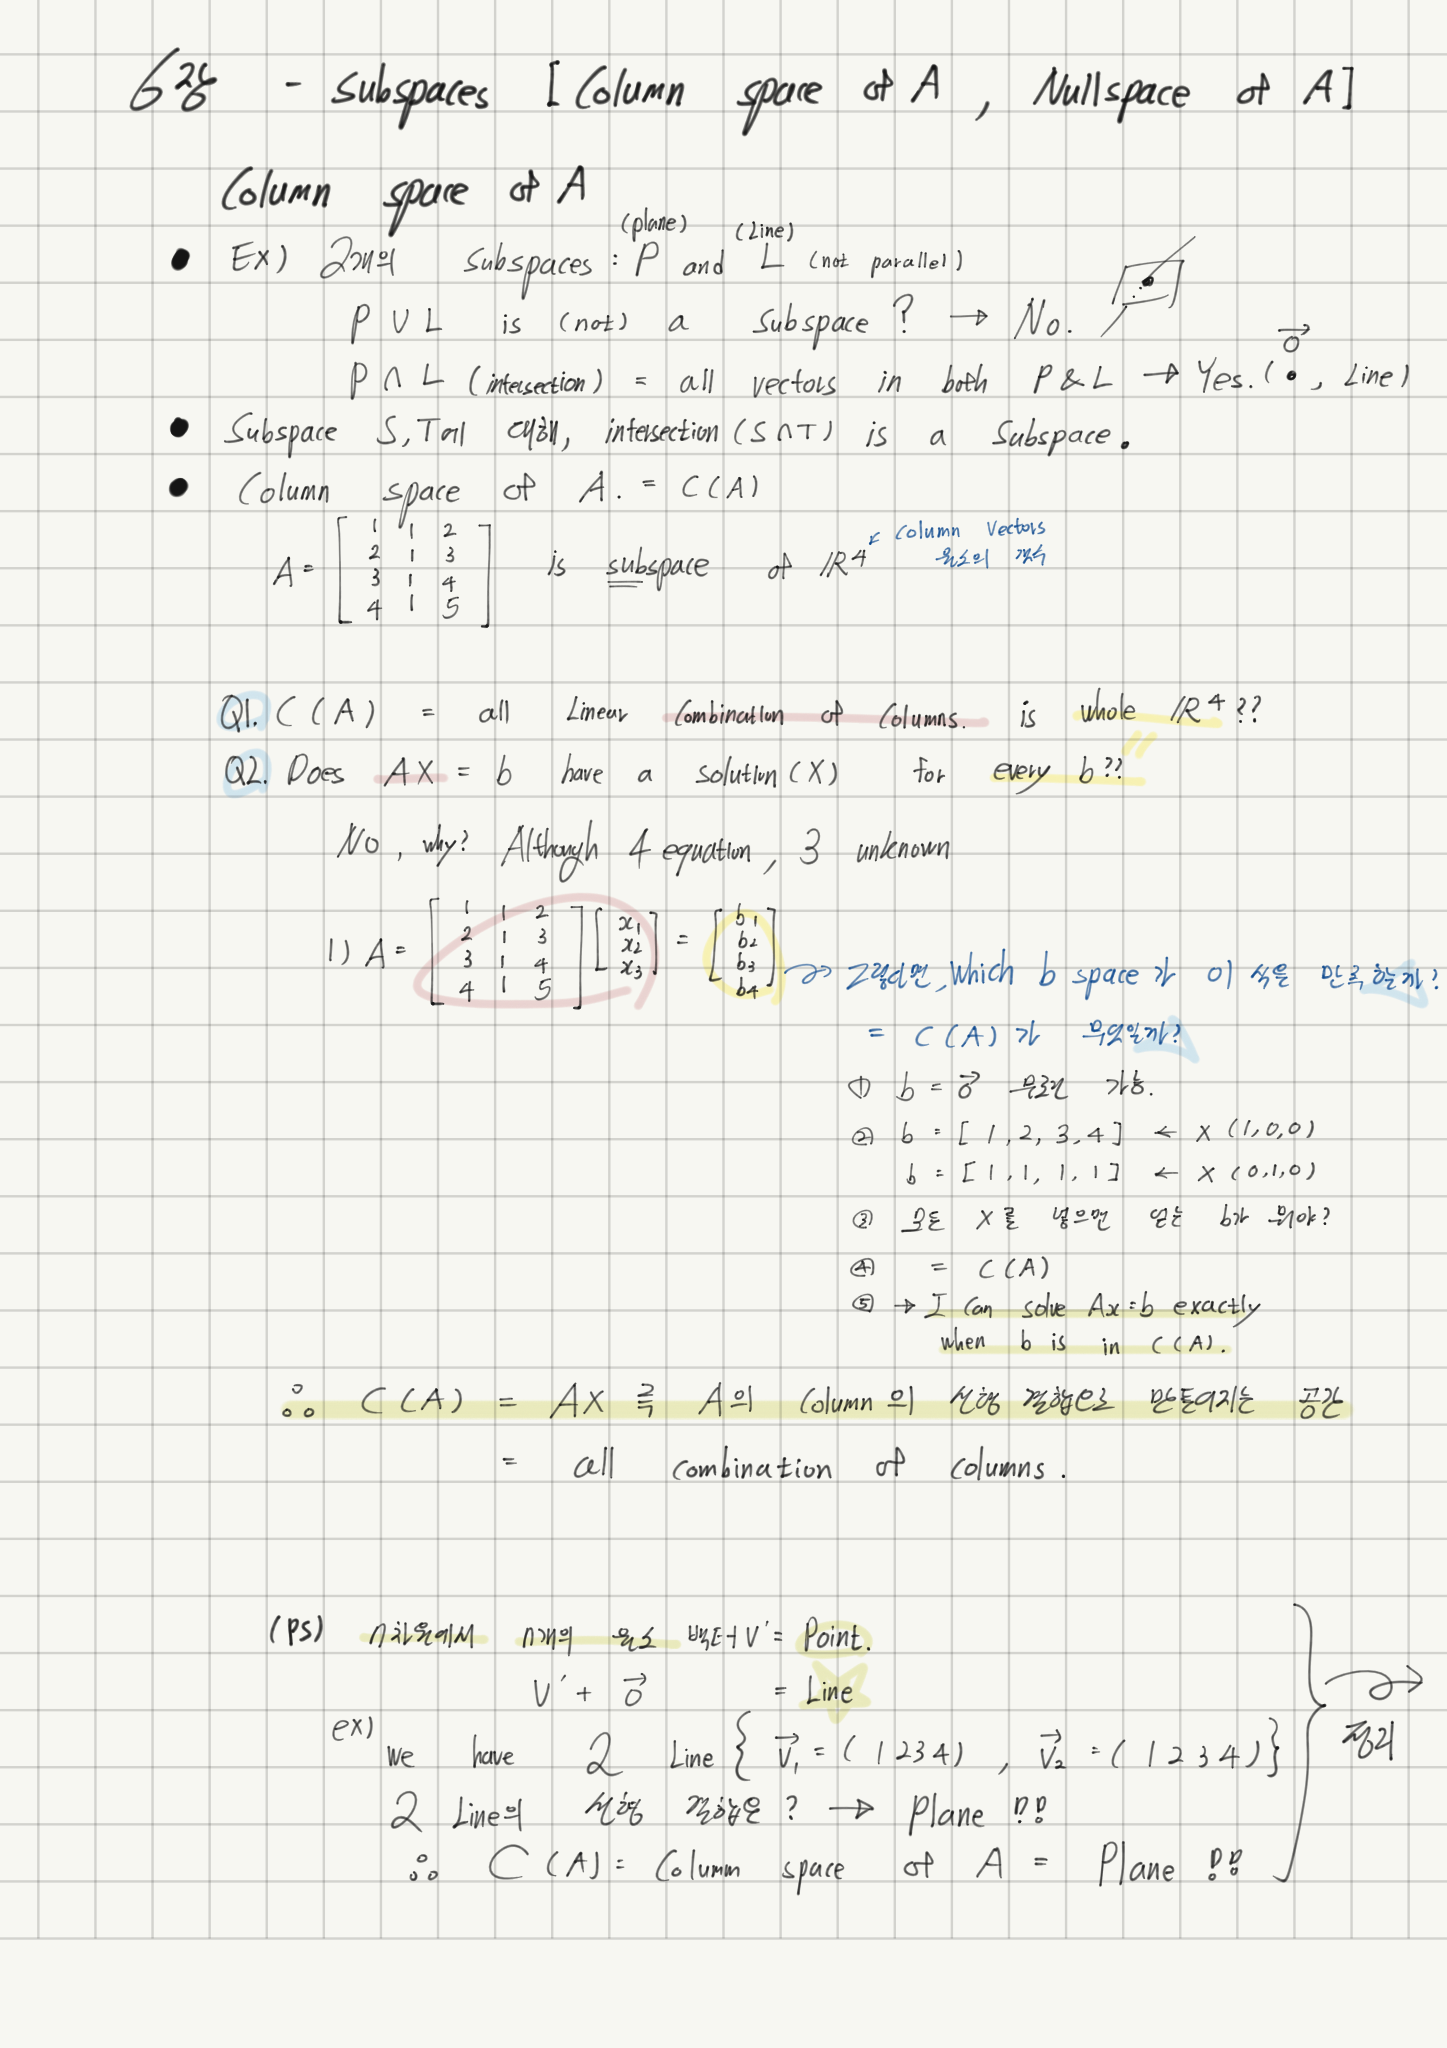 6강 - Subspaces [Column space of A, Nullspace of A]
Column space of A
(plane) (Line)
• Ex) 2개의 subspaces : P and L (not parallel)
P ∪ L is (not) a subspace? → No.
P ∩ L (intersection) = all vectors in both P & L → Yes. (0⃗ •, Line)
• Subspace S,T에 대해, intersection (S∩T) is a subspace.
• Column space of A. = C(A)
A = [ 1 1 2
2 1 3
3 1 4
4 1 5 ] is subspace of ℝ4 ← Column vectors 원소의 갯수
Q1. C(A) = all Linear Combination of Columns. is whole ℝ4 ??
Q2. Does AX = b have a solution(X) for every b??
No, why? Although 4 equation, 3 unknown
1) A = [ 1 1 2
2 1 3
3 1 4
4 1 5 ] [ x1
x2
x3 ] = [ b1
b2
b3
b4 ] → 그렇다면, Which b space가 이 식을 만족하는가?
= C(A)가 무엇일까?
① b = 0⃗ 무조건 가능.
② b = [1,2,3,4] ← X (1,0,0)
b = [1,1,1,1] ← X (0,1,0)
③ 모든 X를 넣으면 얻는 b가 뭐야?
④ = C(A)
⑤ → I can solve Ax=b exactly
when b is in C(A).
∴ C(A) = AX 즉 A의 Column의 선형 결합으로 만들어지는 공간
= all combination of columns.
(ps) n차원에서 n개의 원소 벡터 V' = Point.
V' + 0⃗ = Line
ex) We have 2 Line { V⃗1 = (1 2 3 4), V⃗2 = (1 2 3 4) }
2 Line의 선형 결합은? → Plane !!
∴ C(A) = Column space of A = Plane !!
→ 정리